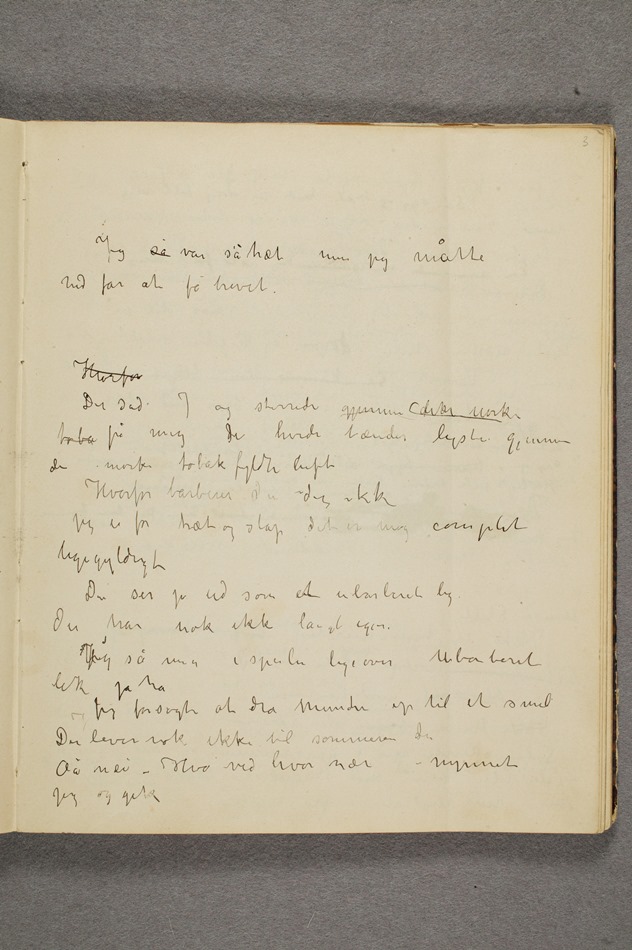 3
Jeg så var så træt men jeg måtte
ned for at få brevet.
Hvorfor
Der sad J og stirrede gjennem det mørke
toba på mig De hvide tænder lyste gjennem
den mørke tobakfyldte luft
Hvorfor barberer Du dig ikke
jeg er for træt og slap det er mig complet
ligegyldigt
Du ser jo ud som et ubarberet lig
Du har nok ikke langt igjen.
Jeg så mig i speilet ligeover Ubarberet
lik ja ha
og Jeg forsøgte at dra munden op til et smil
Du lever nok ikke til sommeren du
Oå nei – Hvo ved hvor nær – nynnet
jeg og gik